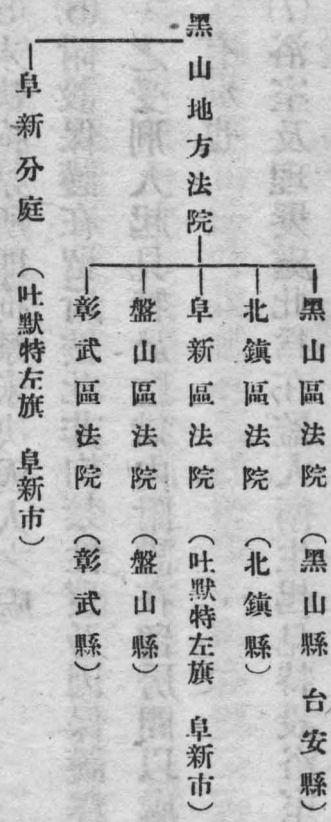 黑山地方法院
黑山區法院（黑山縣 台安縣）
北鎮區法院（北鎮縣）
阜新區法院（吐默特左旗 阜新市）
盤山區法院（盤山縣）
彰武區法院（彰武縣）
阜新分庭（吐默特左旗 阜新市）